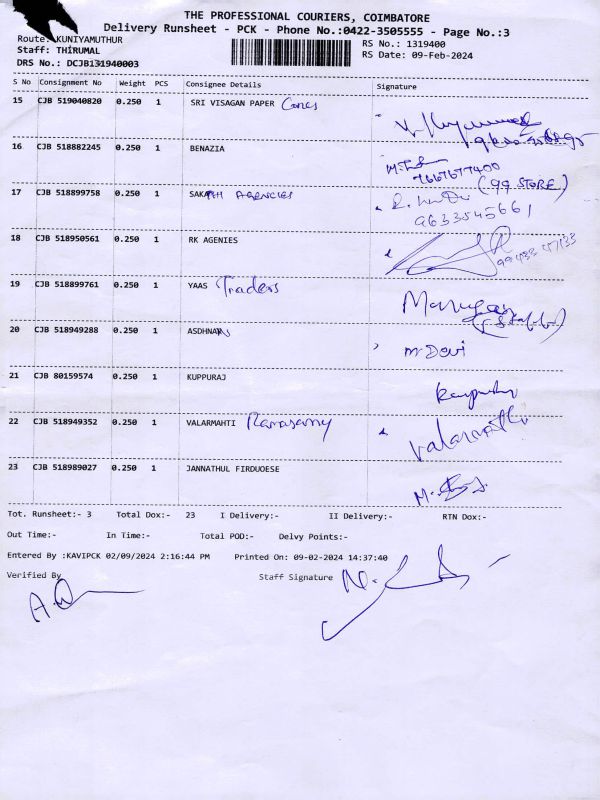 THE PROFESSIONAL COURIERS, COIMBATORE
Delivery Runsheet - PCK - Phone No.:0422-3505555 - Page No.:3
Route: KUNIYAMUTHUR
RS No.: 1319400
Staff: THIRUMAL
RS Date: 09-Feb-2024
DRS No.: DCJB131940003
S No Consignment No Weight PCS Consignee Details Signature
15 CJB 519040820 0.250 1 SRI VISAGAN PAPER Cones
16 CJB 518882245 0.250 1 BENAZIA
7667677400
(99 STORE)
17 CJB 518899758 0.250 1 SAKTHI AGENCIES
9633545661
18 CJB 518950561 0.250 1 RK AGENIES
19 CJB 518899761 0.250 1 YAAS Traders
Murugan
(Staff)
20 CJB 518949288 0.250 1 ASDHNAN
M Devi
21 CJB 80159574 0.250 1 KUPPURAJ
22 CJB 518949352 0.250 1 VALARMAHTI Ramasamy
Valarmathi
23 CJB 518989027 0.250 1 JANNATHUL FIRDUOESE
Tot. Runsheet:- 3 Total Dox:- 23 I Delivery:- II Delivery:- RTN Dox:-
Out Time:- In Time:- Total POD:- Delvy Points:-
Entered By :KAVIPCK 02/09/2024 2:16:44 PM Printed On: 09-02-2024 14:37:40
Verified By Staff Signature